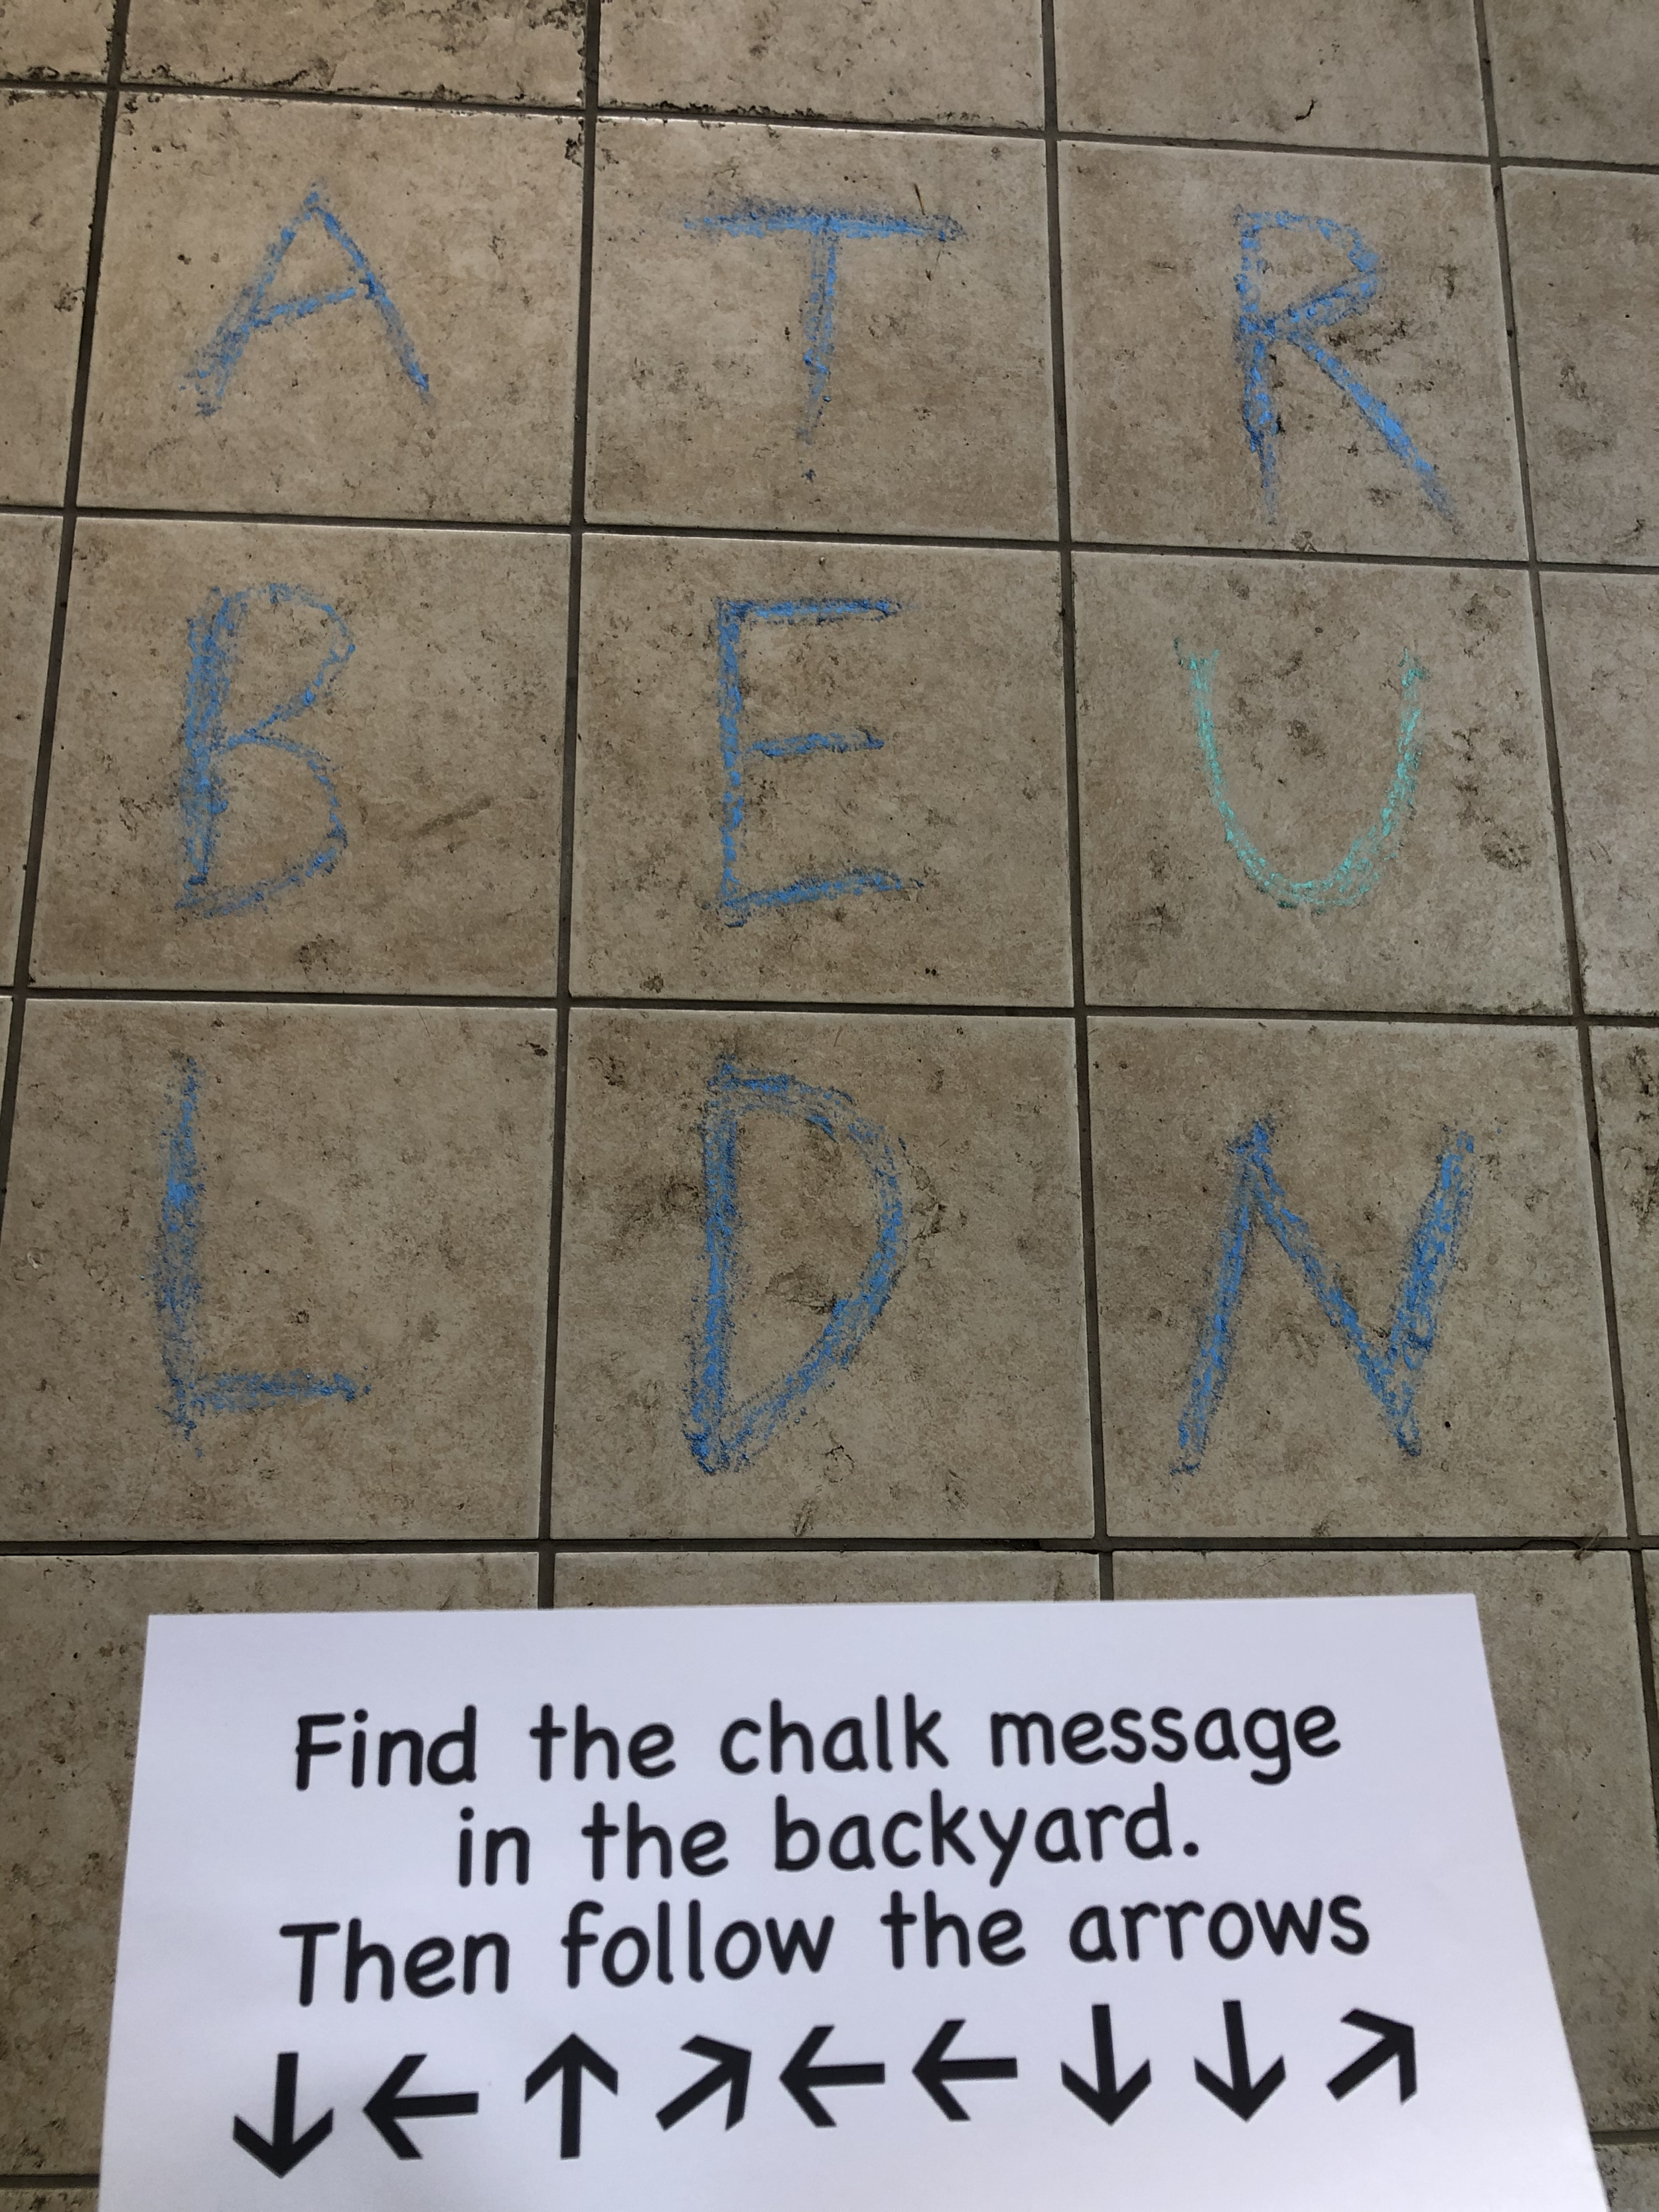 A T R
B E U
L D N
Find the chalk message
in the backyard.
Then follow the arrows
↓ ← ↑ ↗ ← ← ↓ ↓ ↗